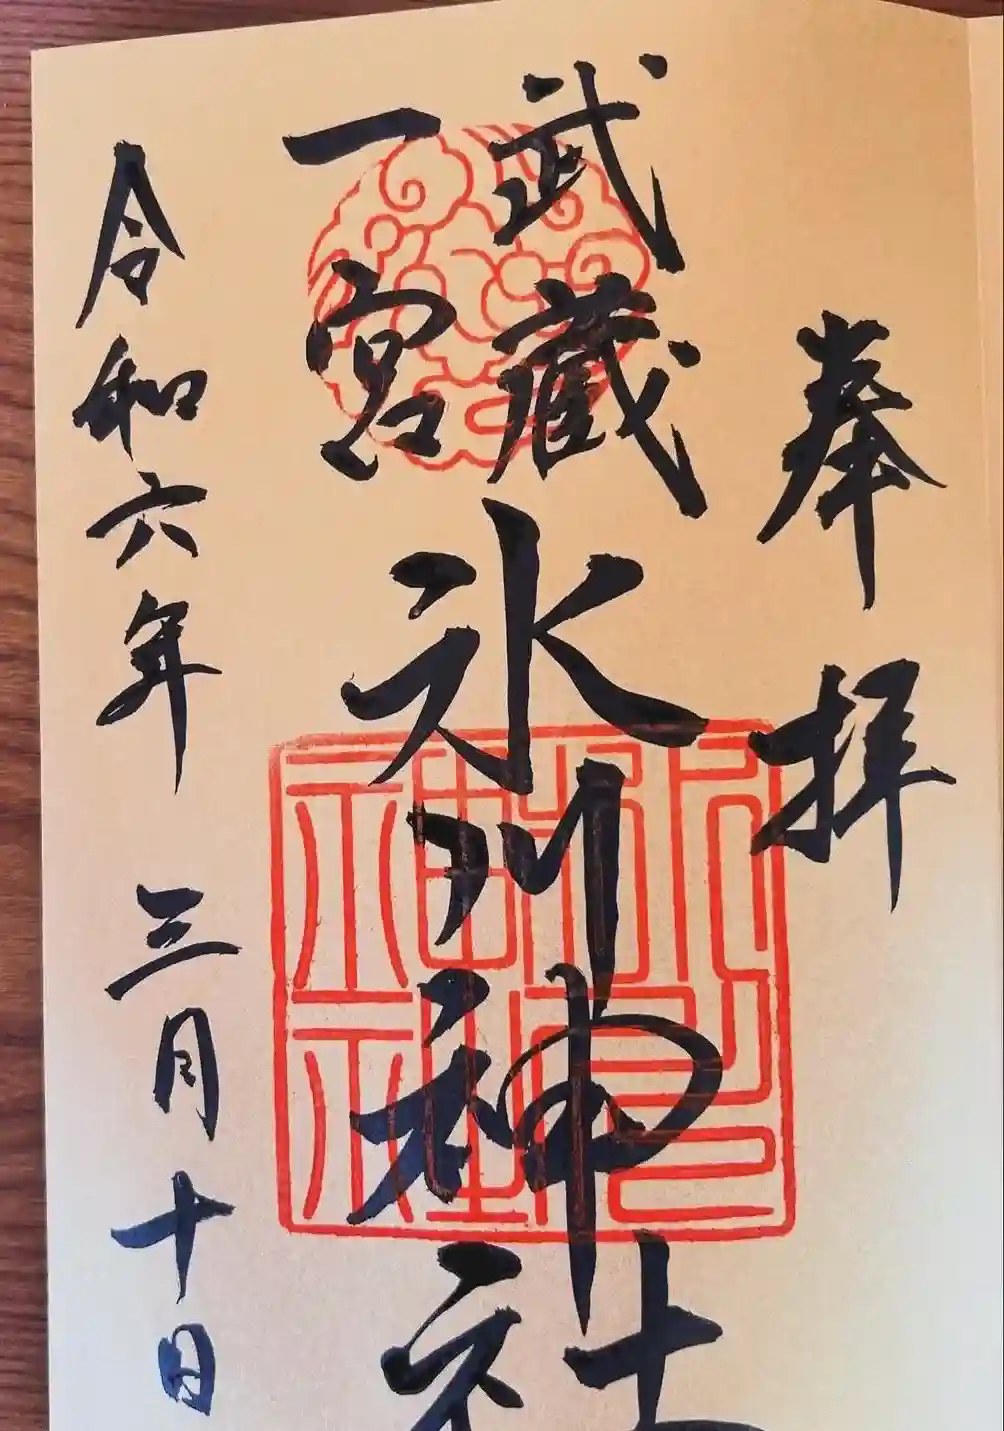 奉拝
武蔵
一宮
氷川神社
令和六年三月十日